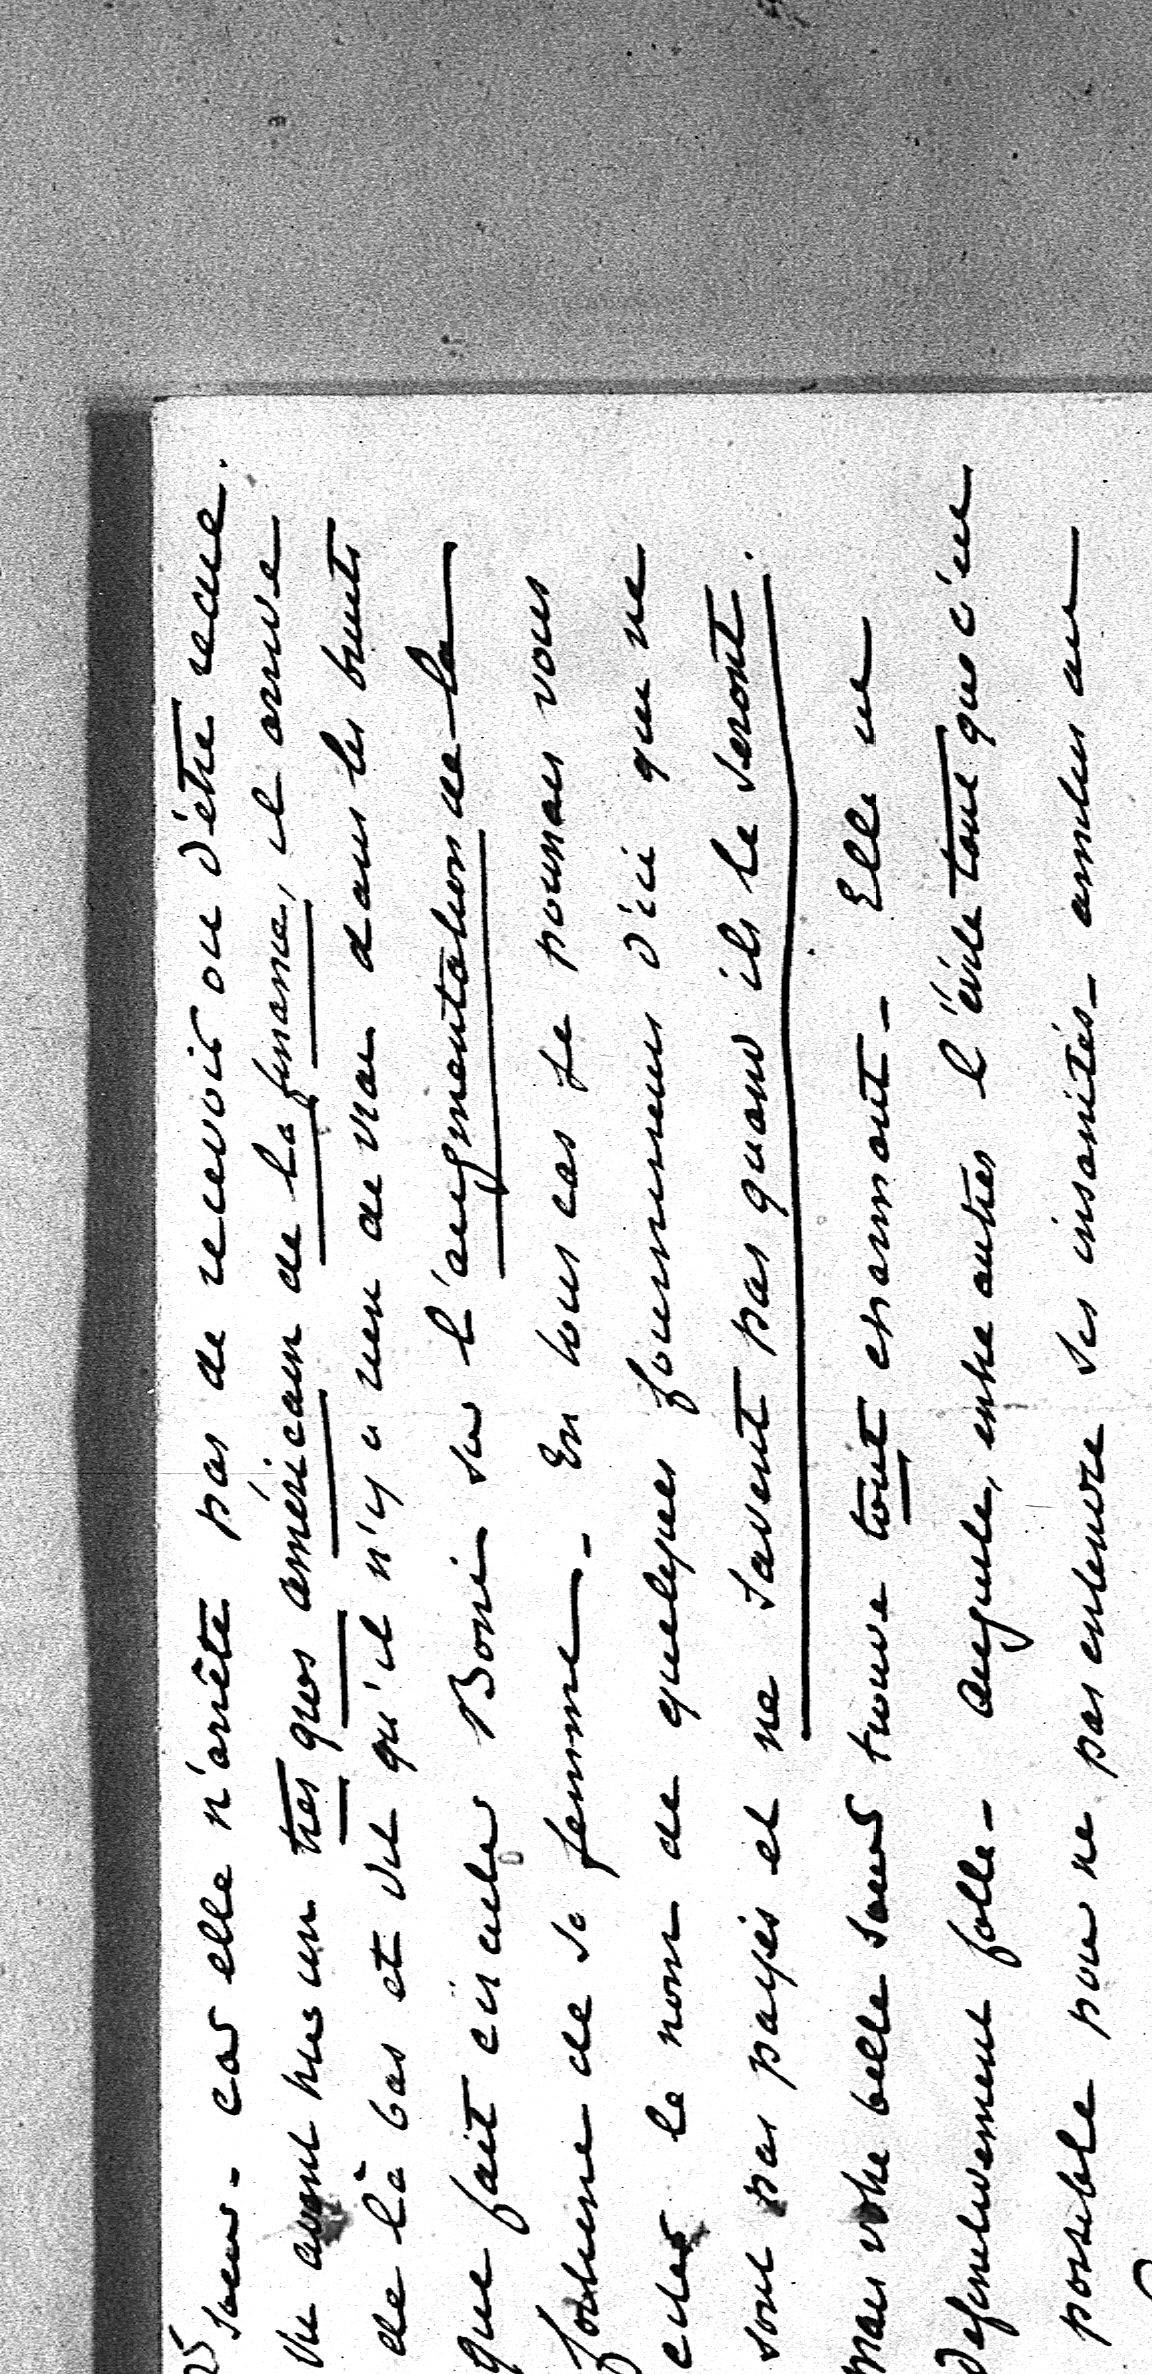 Soeur - car elle n'arrête pas de recevoir ou d'être reçue.
vu avant hier un très gros américain de la finance, il arrive
de là bas et dit qu'il n'y a rien de vrai dans les bruits
que fait circuler Boni sur l'augmentation de la
fortune de sa femme - En tous cas je pourrais vous
citer le nom de quelques fournisseurs d'ici qui ne
sont pas payés et ne savent pas quand ils le seront.
mais votre belle soeur trouve tout charmant - Elle est
définitivement folle - Auguste, entre autres l'évite tant que c'est
possible pour ne pas entendre ses insanités -